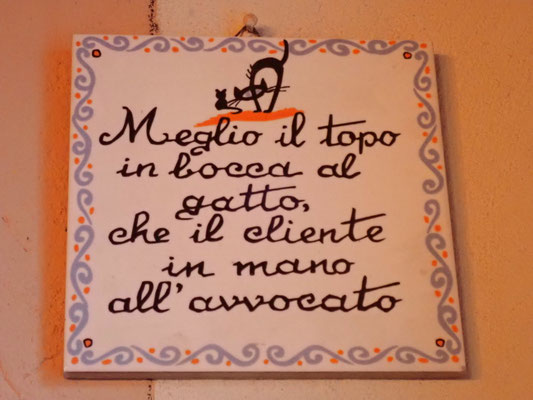 Meglio il topo
in bocca al
gatto,
che il cliente
in mano
all'avvocato